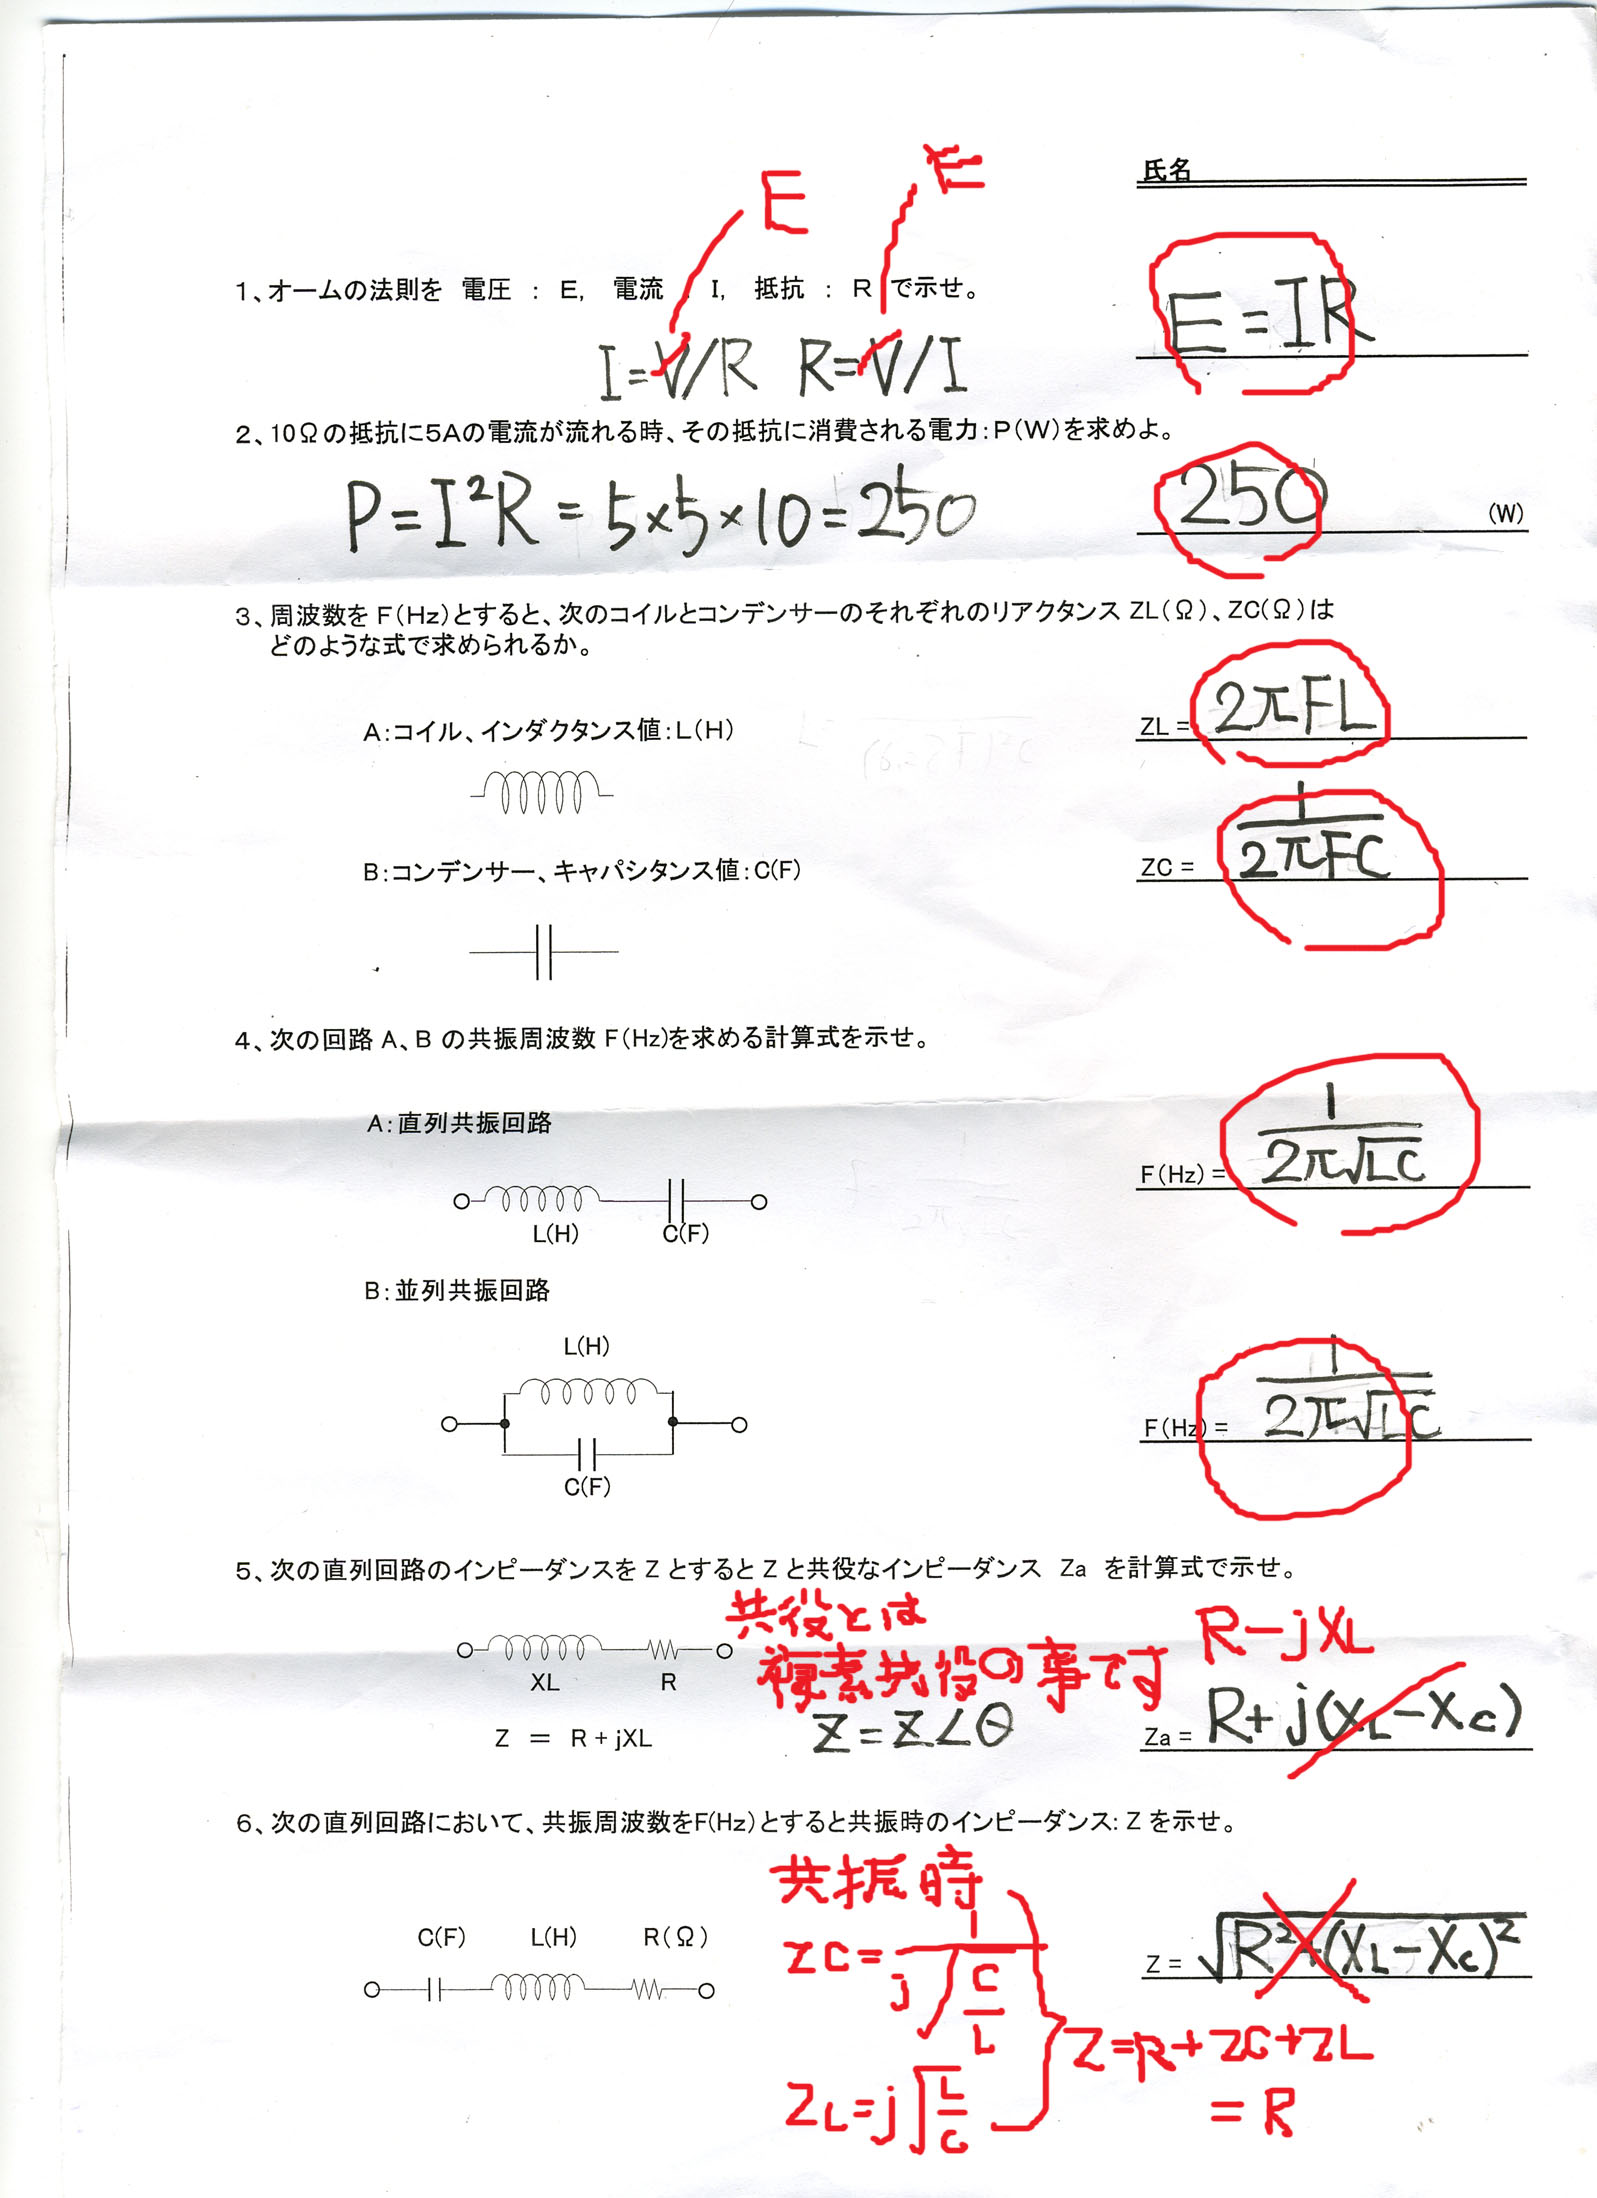 氏名
E E
1、オームの法則を 電圧 : E, 電流 : I, 抵抗 : R で示せ。
E=IR
I=V/R R=V/I
2、10Ωの抵抗に5Aの電流が流れる時、その抵抗に消費される電力:P(W)を求めよ。
P=I²R=5×5×10=250
250 (W)
3、周波数をF(Hz)とすると、次のコイルとコンデンサーのそれぞれのリアクタンスZL(Ω)、ZC(Ω)は
どのような式で求められるか。
A:コイル、インダクタンス値:L(H)
ZL= 2πFL
B:コンデンサー、キャパシタンス値:C(F)
ZC = 1/2πFC
4、次の回路A、Bの共振周波数F(Hz)を求める計算式を示せ。
A:直列共振回路
L(H) C(F)
F(Hz)= 1/2π√LC
B:並列共振回路
L(H)
C(F)
F(Hz)= 1/2π√LC
5、次の直列回路のインピーダンスをZとするとZと共役なインピーダンス Za を計算式で示せ。
共役とは
複素共役の事です
R-jXL
XL R
Z = R+jXL
Z=Z∠θ
Za= R+j(XL-Xc)
6、次の直列回路において、共振周波数をF(Hz)とすると共振時のインピーダンス:Zを示せ。
共振時
C(F) L(H) R(Ω)
ZC=1/j√C/L
Z= √R²+(XL-Xc)²
ZL=j√L/C
Z=R+ZC+ZL
=R